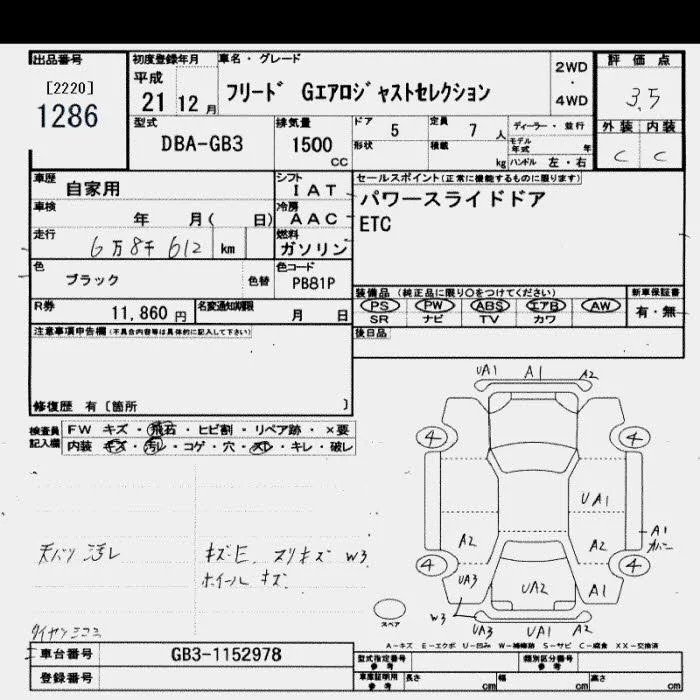 出品番号
[2220]
1286
初度登録年月
平成
21 12 月
車名・グレード
フリード Gエアロジャストセレクション
2WD
・
4WD
評価点
3.5
外装 内装
C C
型式
DBA-GB3
排気量
1500
cc
ドア 5
定員 7 人
形状
積載 kg
ディーラー・並行
モデル年式 年
ハンドル 左・右
車歴
自家用
シフト
I A T
車検
年 月( 日)
冷房
A A C
走行
6万8千612 km
燃料
ガソリン
色
ブラック
色替
色コード
PB81P
セールスポイント(正常に機能するものに限ります)
パワースライドドア
ETC
装備品 (純正品に限り○をつけてください)
PS PW ABS エアB AW
SR ナビ TV カワ
新車保証書
有・無
R券
11,860 円
名変通知期限
月 日
後日品
注意事項申告欄(不具合内容等は具体的に記入して下さい)
修復歴 有〔箇所 〕
検査員
記入欄
FW キズ・飛石・ヒビ割・リペア跡・×要
内装 キズ・汚レ・コゲ・穴・スレ・キレ・破レ
UA1 A1 A2
4 4
UA1
A1
A2 A2
4 4
UA3 UA2 A1
W3
UA3 UA1 A2
スペア
天バリ 汚レ
キズ・E. スリキズ W3
ホイール キズ
A-キズ E-エクボ U-凹み W-補修跡 S-サビ C-腐食 XX-交換済
車台番号
GB3-1152978
登録番号
型式指定番号
参考
類別区分番号
参考
車庫証明用
参考
長さ cm
幅 cm
高さ cm